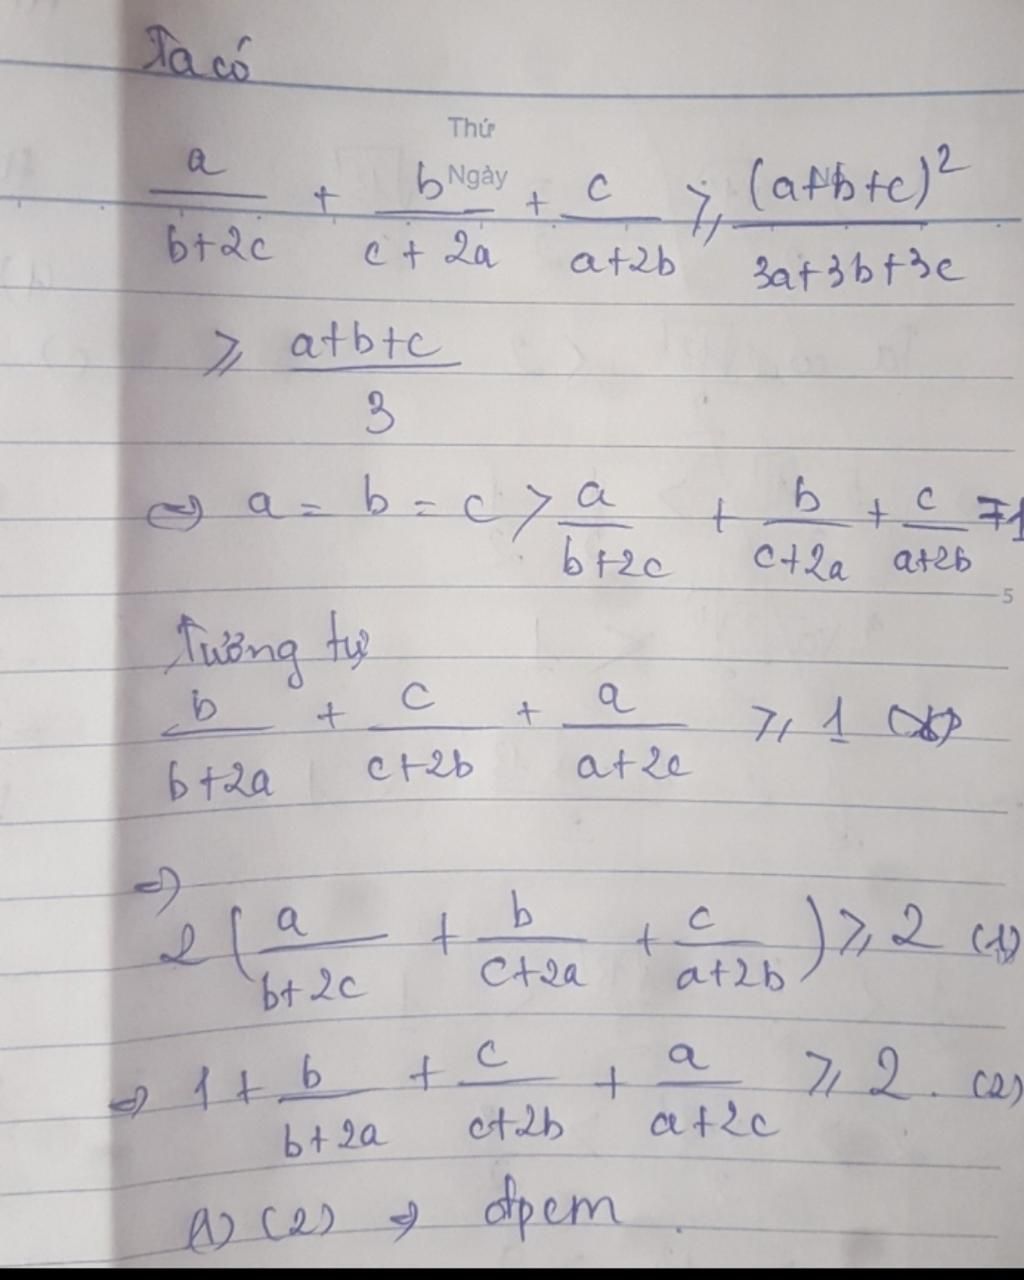 Ta có
Thứ
Ngày
a/(b+2c) + b/(c+2a) + c/(a+2b) ⩾ (a+b+c)²/(3a+3b+3c)
⩾ (a+b+c)/3
⇔ a = b = c > a/(b+2c) + b/(c+2a) + c/(a+2b) = 1
5
Tương tự
b/(b+2a) + c/(c+2b) + a/(a+2c) ⩾ 1
⇒
2(a/(b+2c) + b/(c+2a) + c/(a+2b)) ⩾ 2 (1)
⇒ 1 + b/(b+2a) + c/(c+2b) + a/(a+2c) ⩾ 2. (2)
(1) (2) ⇒ đpcm.